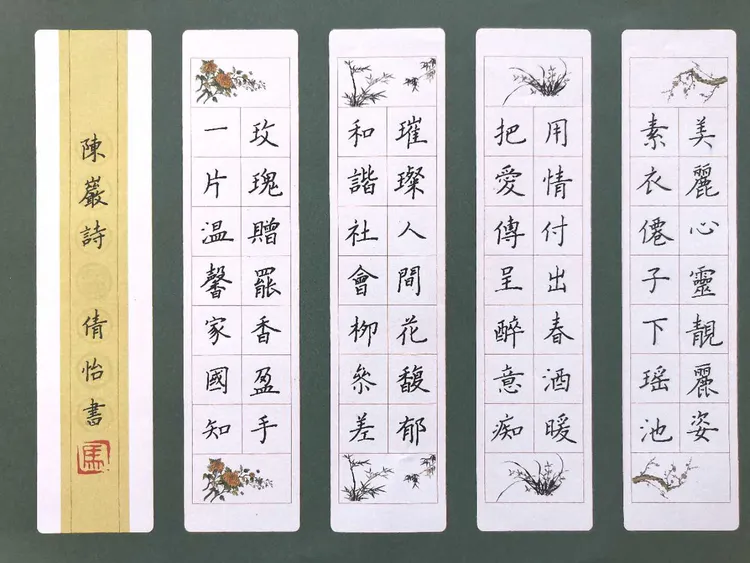 美麗心靈靚麗姿
素衣僊子下瑤池
用情付出春酒暖
把愛傳呈醉意痴
璀璨人間花馥郁
和諧社會柳參差
玫瑰贈罷香盈手
一片温馨家國知
陳巖詩 倩怡書
馬